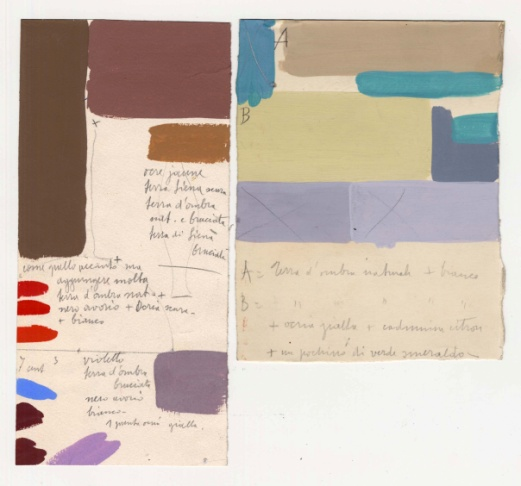 terra Siena
terra d'ombra
nat. e bruciata
terra di Siena
bruciata
come quello accanto + ma
aggiungere molto
terra d'ombra nat. +
nero avorio +
+ bianco
violetto
terra d'ombra
bruciata
nero avorio
bianco
giallo.
A
B
A = Terra d'ombra naturale + bianco
B = " " " " "
+ ocria gialla + cadmium citron
+ un pochino di verde smeraldo